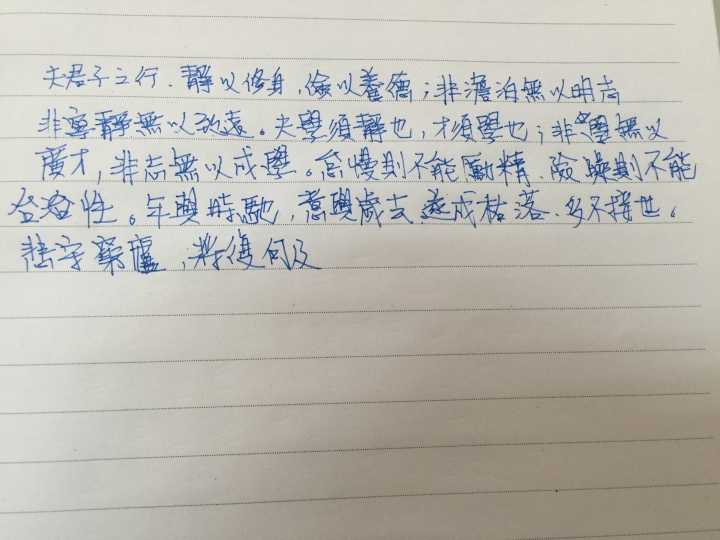 夫君子之行．靜以修身，儉以養德；非澹泊無以明尚
非寧靜無以致遠。夫學須靜也，才須學也；非學無以
廣才，非志無以成學。怠慢則不能勵精．險躁則不能
治性。年與時馳，意與歲去．遂成枯落．多不接世。
悲守窮廬，將復何及